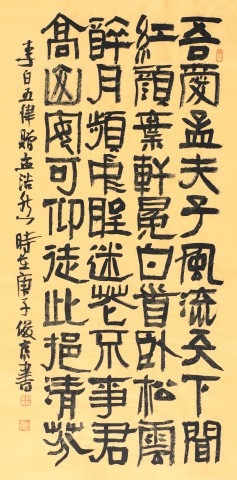 吾愛孟夫子風流天下聞
紅顔棄軒冕白首臥松雲
醉月頻中聖迷花不事君
高山安可仰徒此挹清芬
李白五律贈孟浩然時在庚子俊書